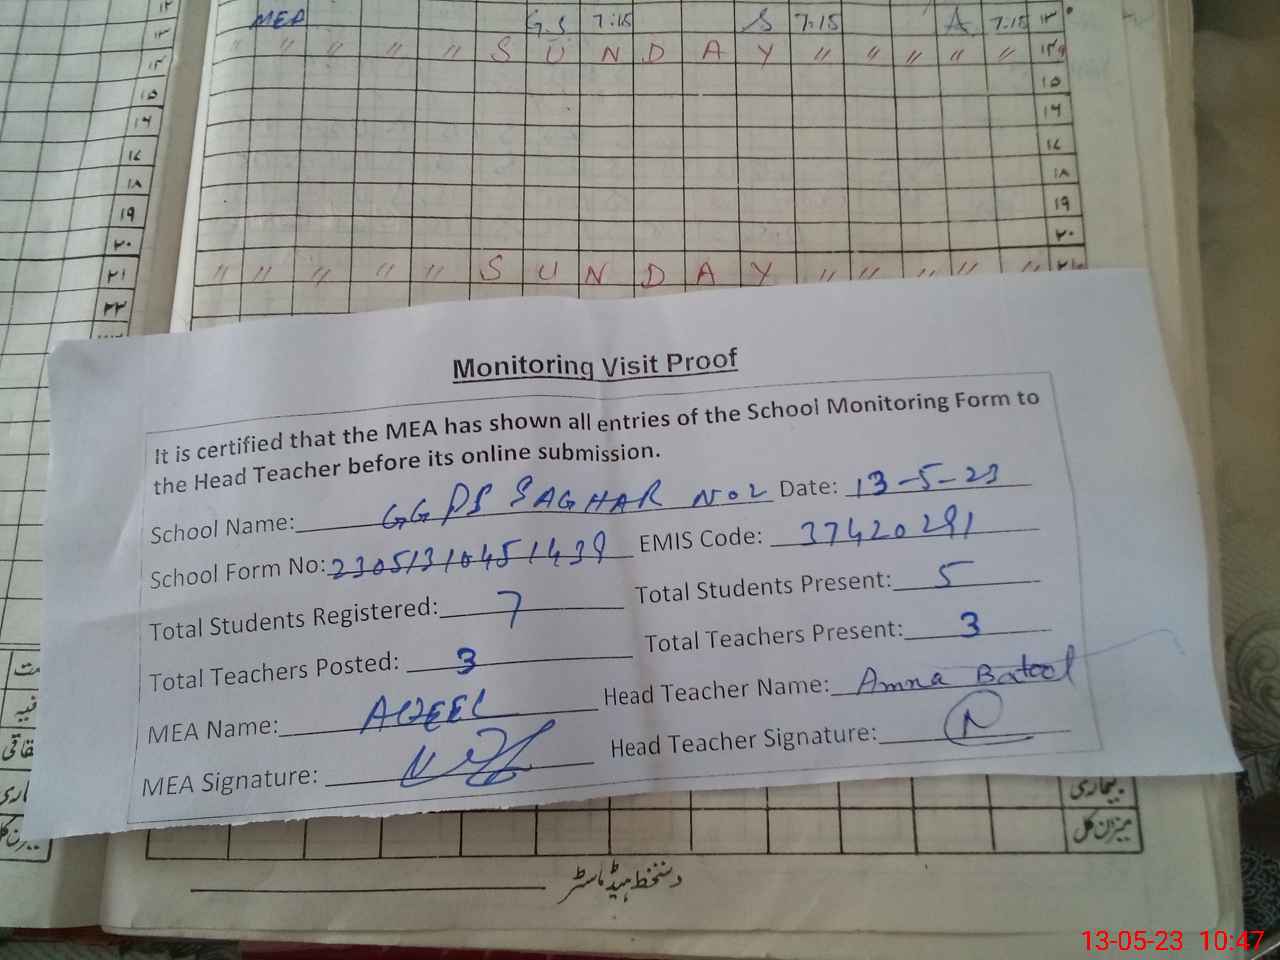 MEA G.S 7:15 S 7:15 A 7:15 ۱۳
" " " " " S U N D A Y " " " " " ۱۴
۱۵
۱۶
۱۷
۱۸
۱۹
۲۰
" " " " " S U N D A Y " " " " " ۲۱
Monitoring Visit Proof
It is certified that the MEA has shown all entries of the School Monitoring Form to
the Head Teacher before its online submission.
School Name: GGPS SAGHAR No 2 Date: 13-5-23
School Form No: 23051310451439 EMIS Code: 37420291
Total Students Registered: 7 Total Students Present: 5
Total Teachers Posted: 3 Total Teachers Present: 3
MEA Name: AQEEL Head Teacher Name: Amna Batool
MEA Signature: Head Teacher Signature: N
بیماری
میزان کل
دستخط ہیڈ ماسٹر
13-05-23 10:47